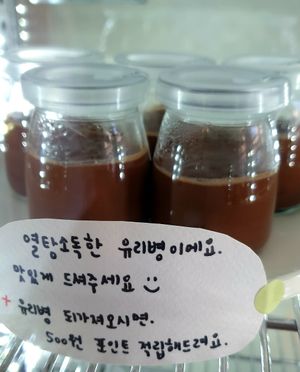 열탕소독한 유리병이에요.
맛있게 드셔주세요
+ 유리병 되가져오시면.
500원 포인트 적립해드려요.